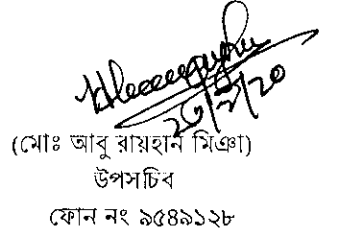 ২৩/২/২০
(মোঃ আবু রায়হান মিঞা)
উপসচিব
ফোন নং ৯৫৪৯১২৮